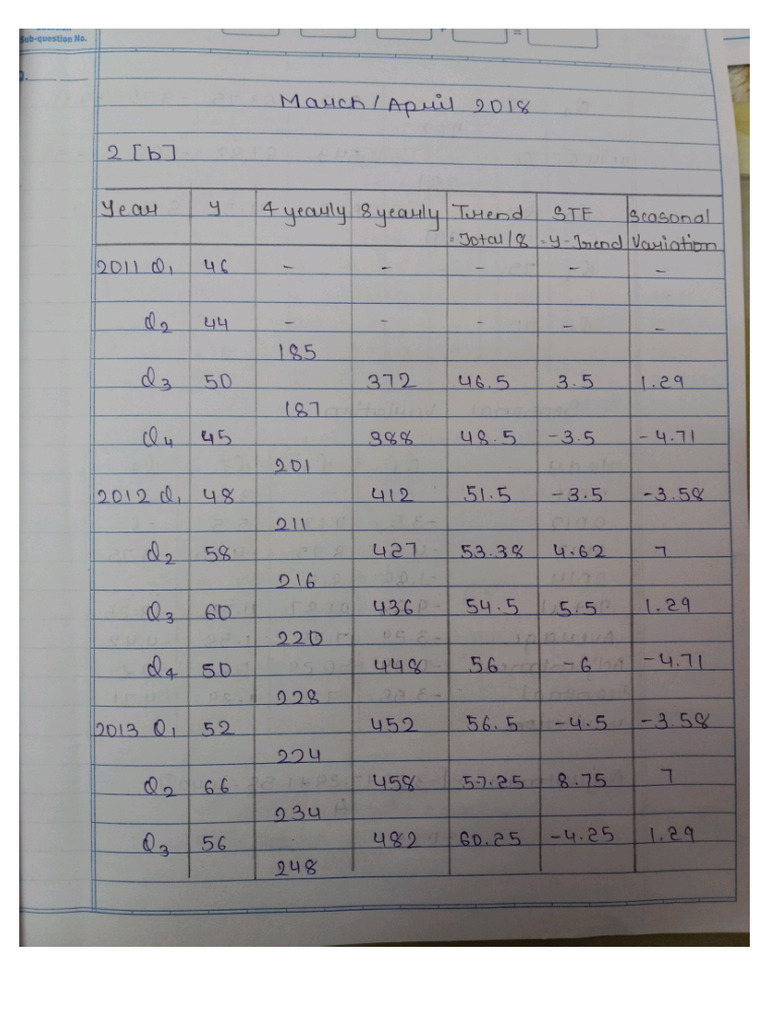 Sub-question No.
=
March/April 2018
2 [b]
Year y 4 yearly 8 yearly Trend STF Seasonal
=Total/8 =y-Trend Variation
2011 Q1 46 - - - - -
Q2 44 - - - - -
185
Q3 50 372 46.5 3.5 1.29
187
Q4 45 388 48.5 -3.5 -4.71
201
2012 Q1 48 412 51.5 -3.5 -3.58
211
Q2 58 427 53.38 4.62 7
216
Q3 60 436 54.5 5.5 1.29
220
Q4 50 448 56 -6 -4.71
228
2013 Q1 52 452 56.5 -4.5 -3.58
224
Q2 66 458 57.25 8.75 7
234
Q3 56 482 60.25 -4.25 1.29
248